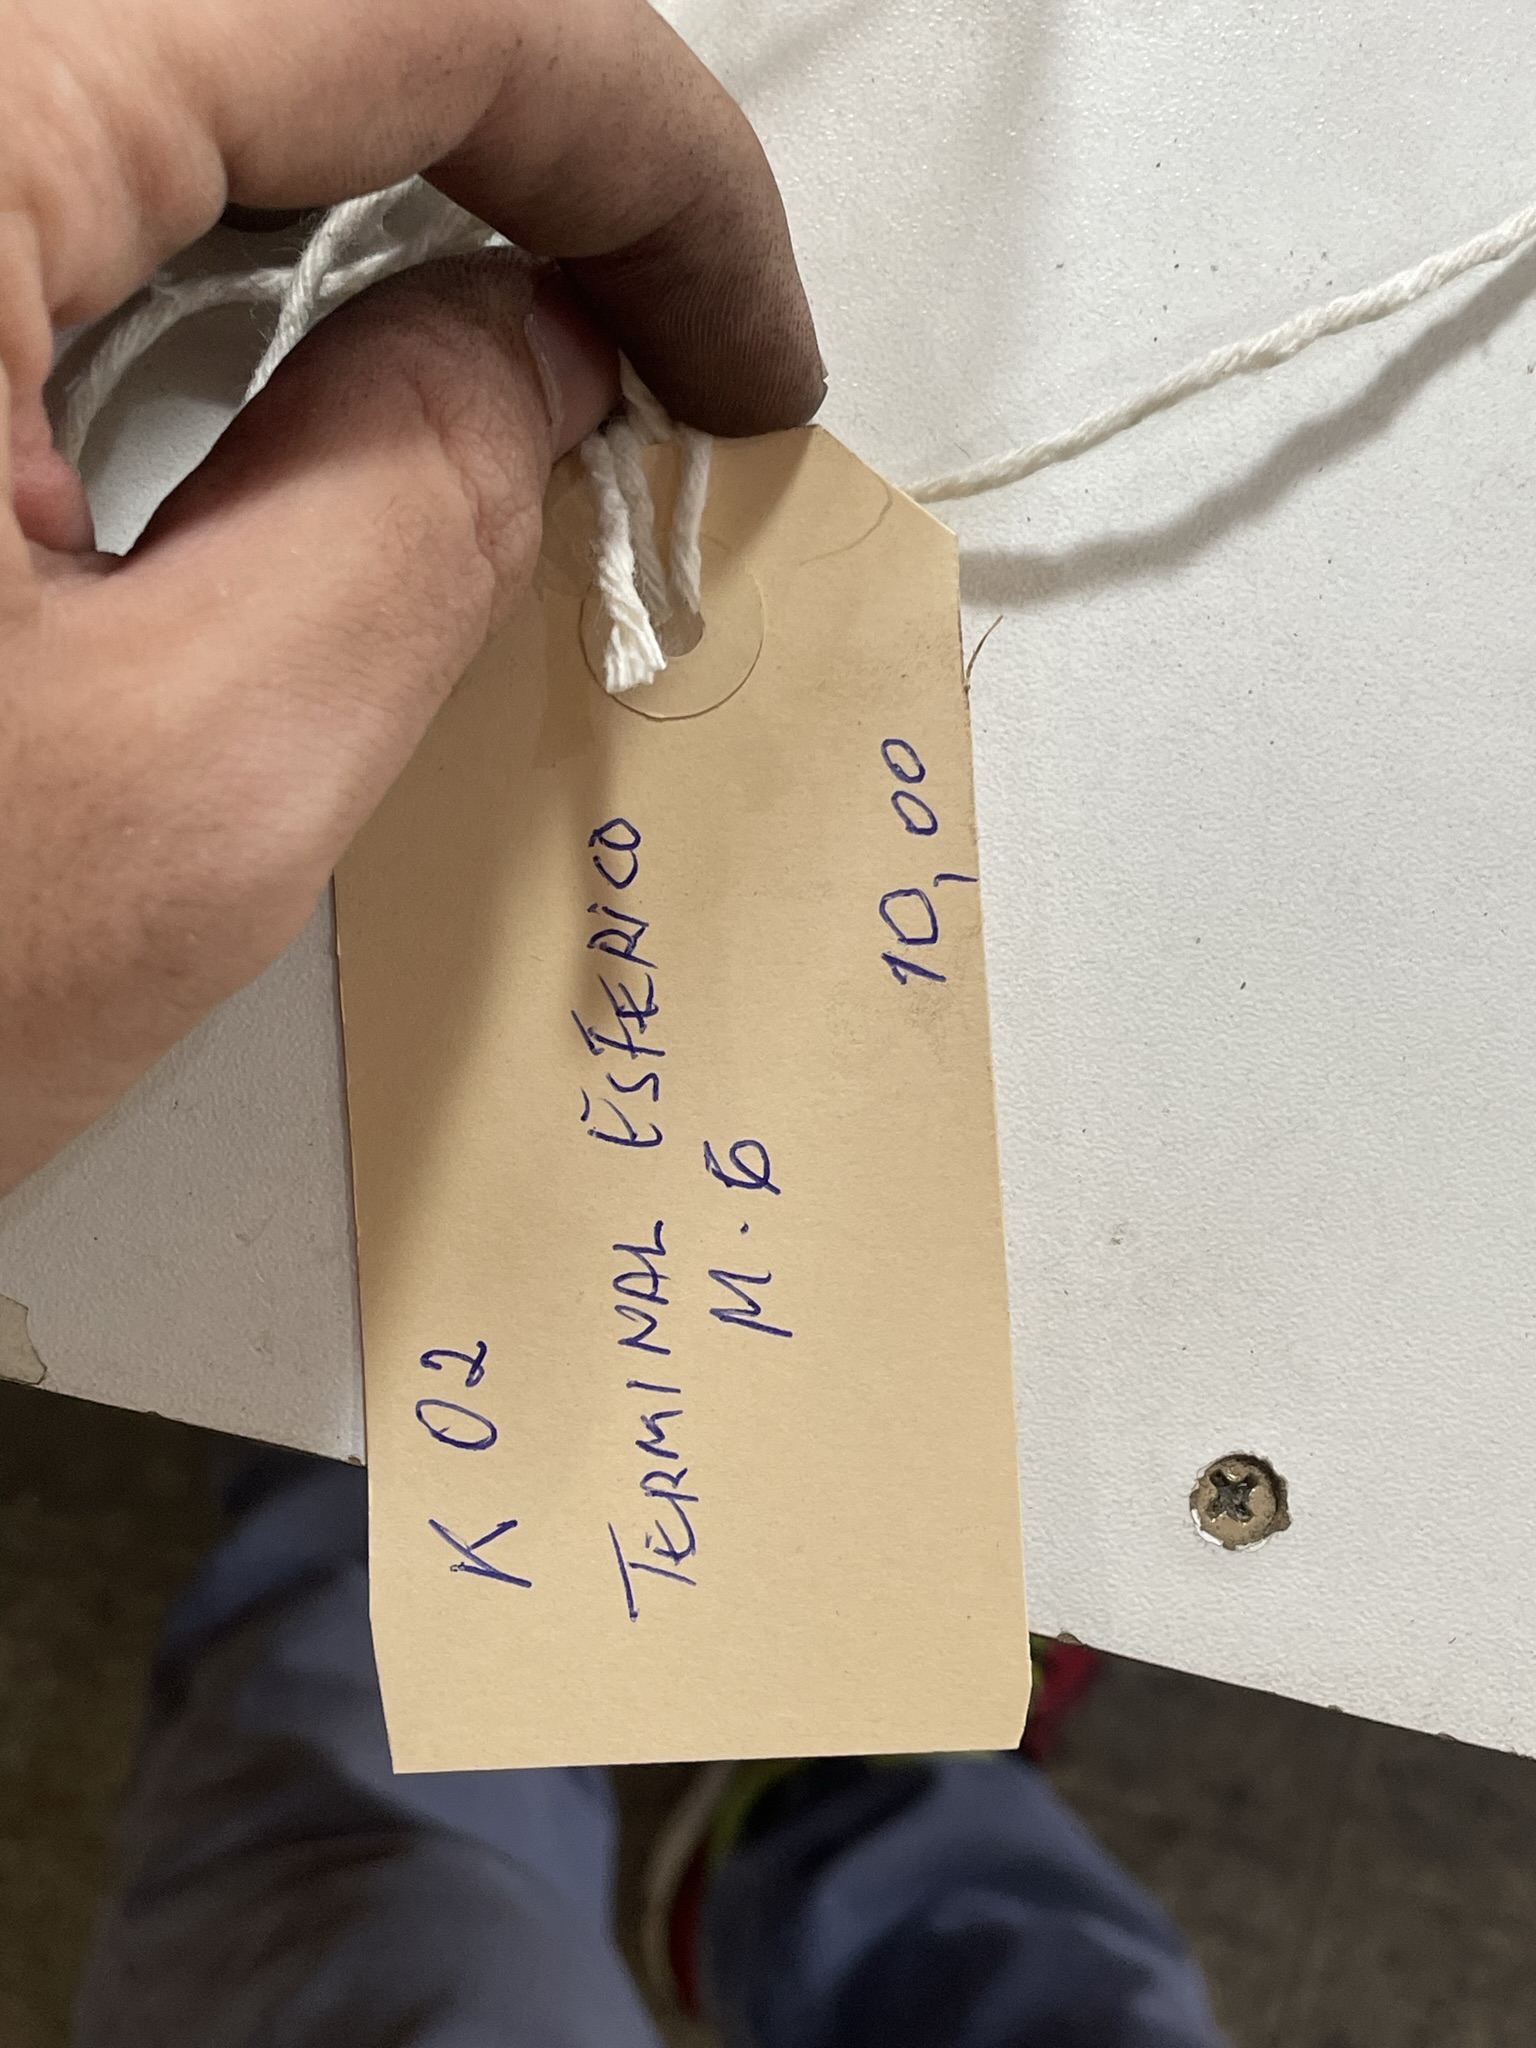 K 02
TERMINAL ESFERICO
M.6
10,00